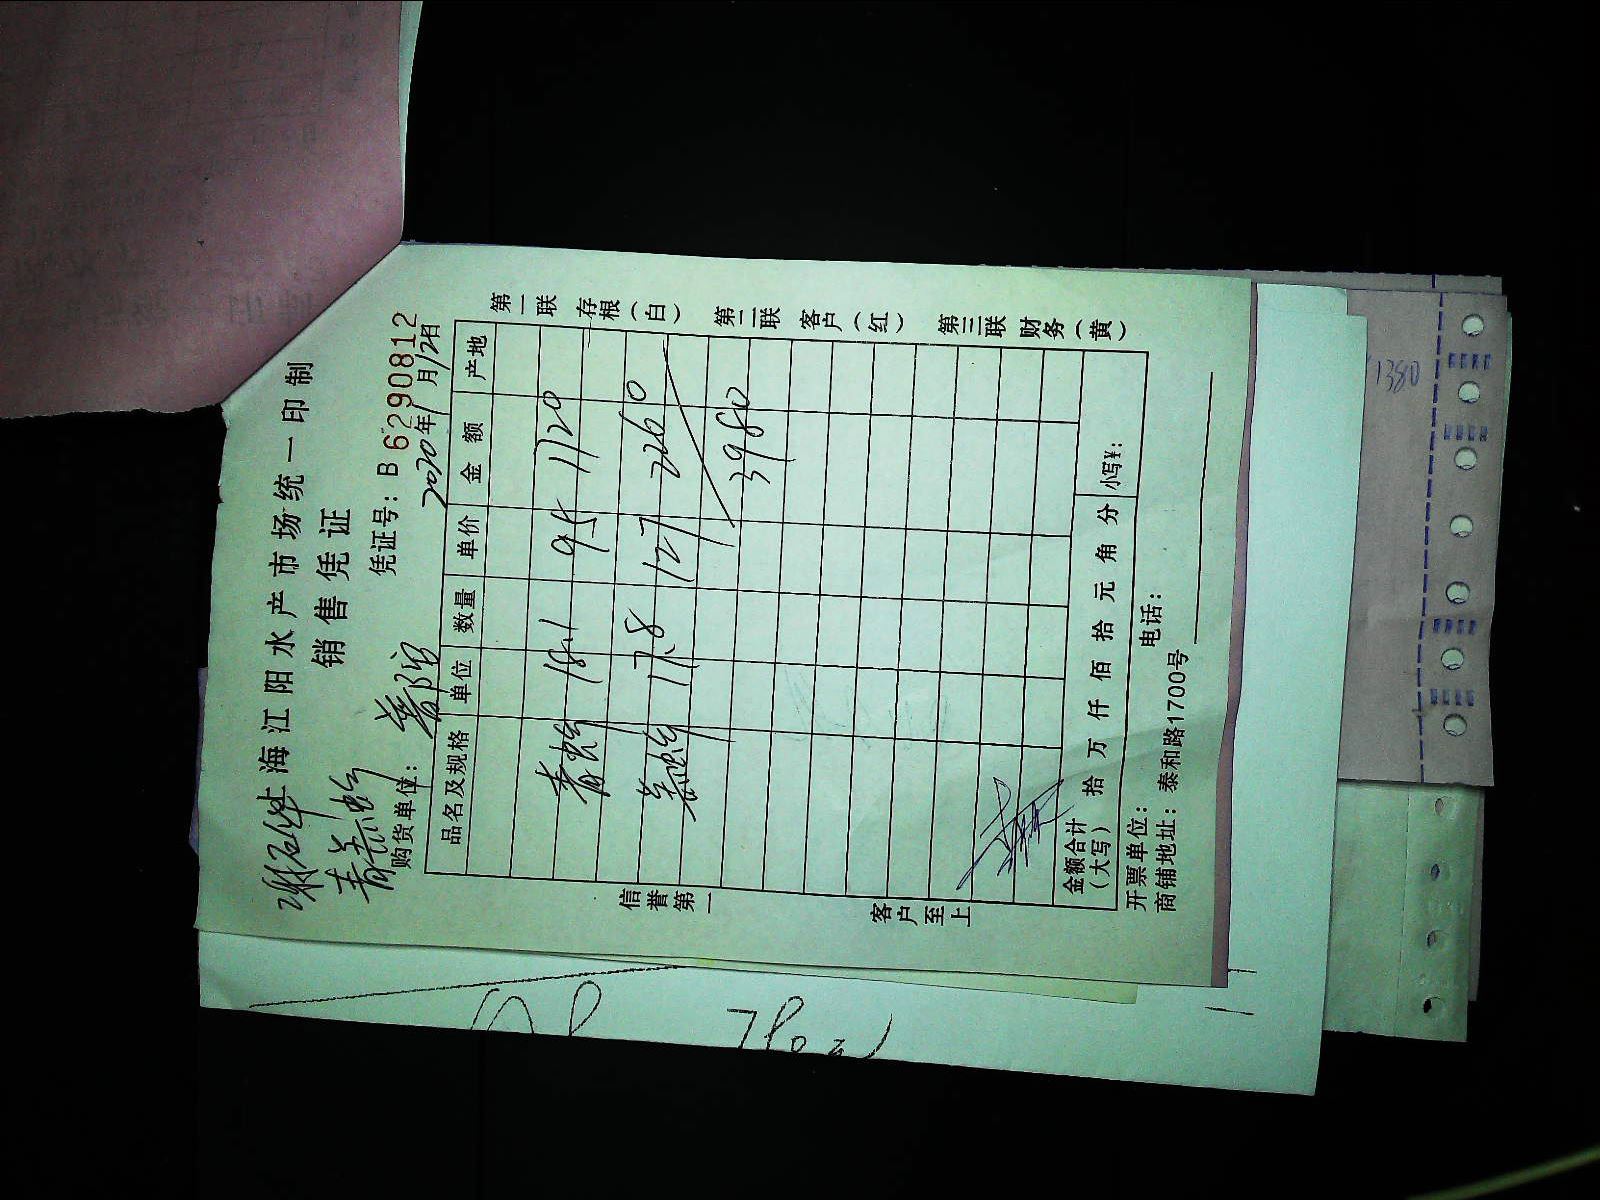 上海江阳水产市场统一印制
销售凭证
凭证号：B 6290812
青
购货单位：
2020年1月12日
品名及规格 单位 数量 单价 金额 产地
青 18.1 95 1720
17.8 127 2260
3980
金额合计（大写） 拾 万 仟 佰 拾 元 角 分 小写¥：
开票单位： 电话：
商铺地址：泰和路1700号
信誉第一
客户至上
第一联 存根（白）
第二联 客户（红）
第三联 财务（黄）
1380